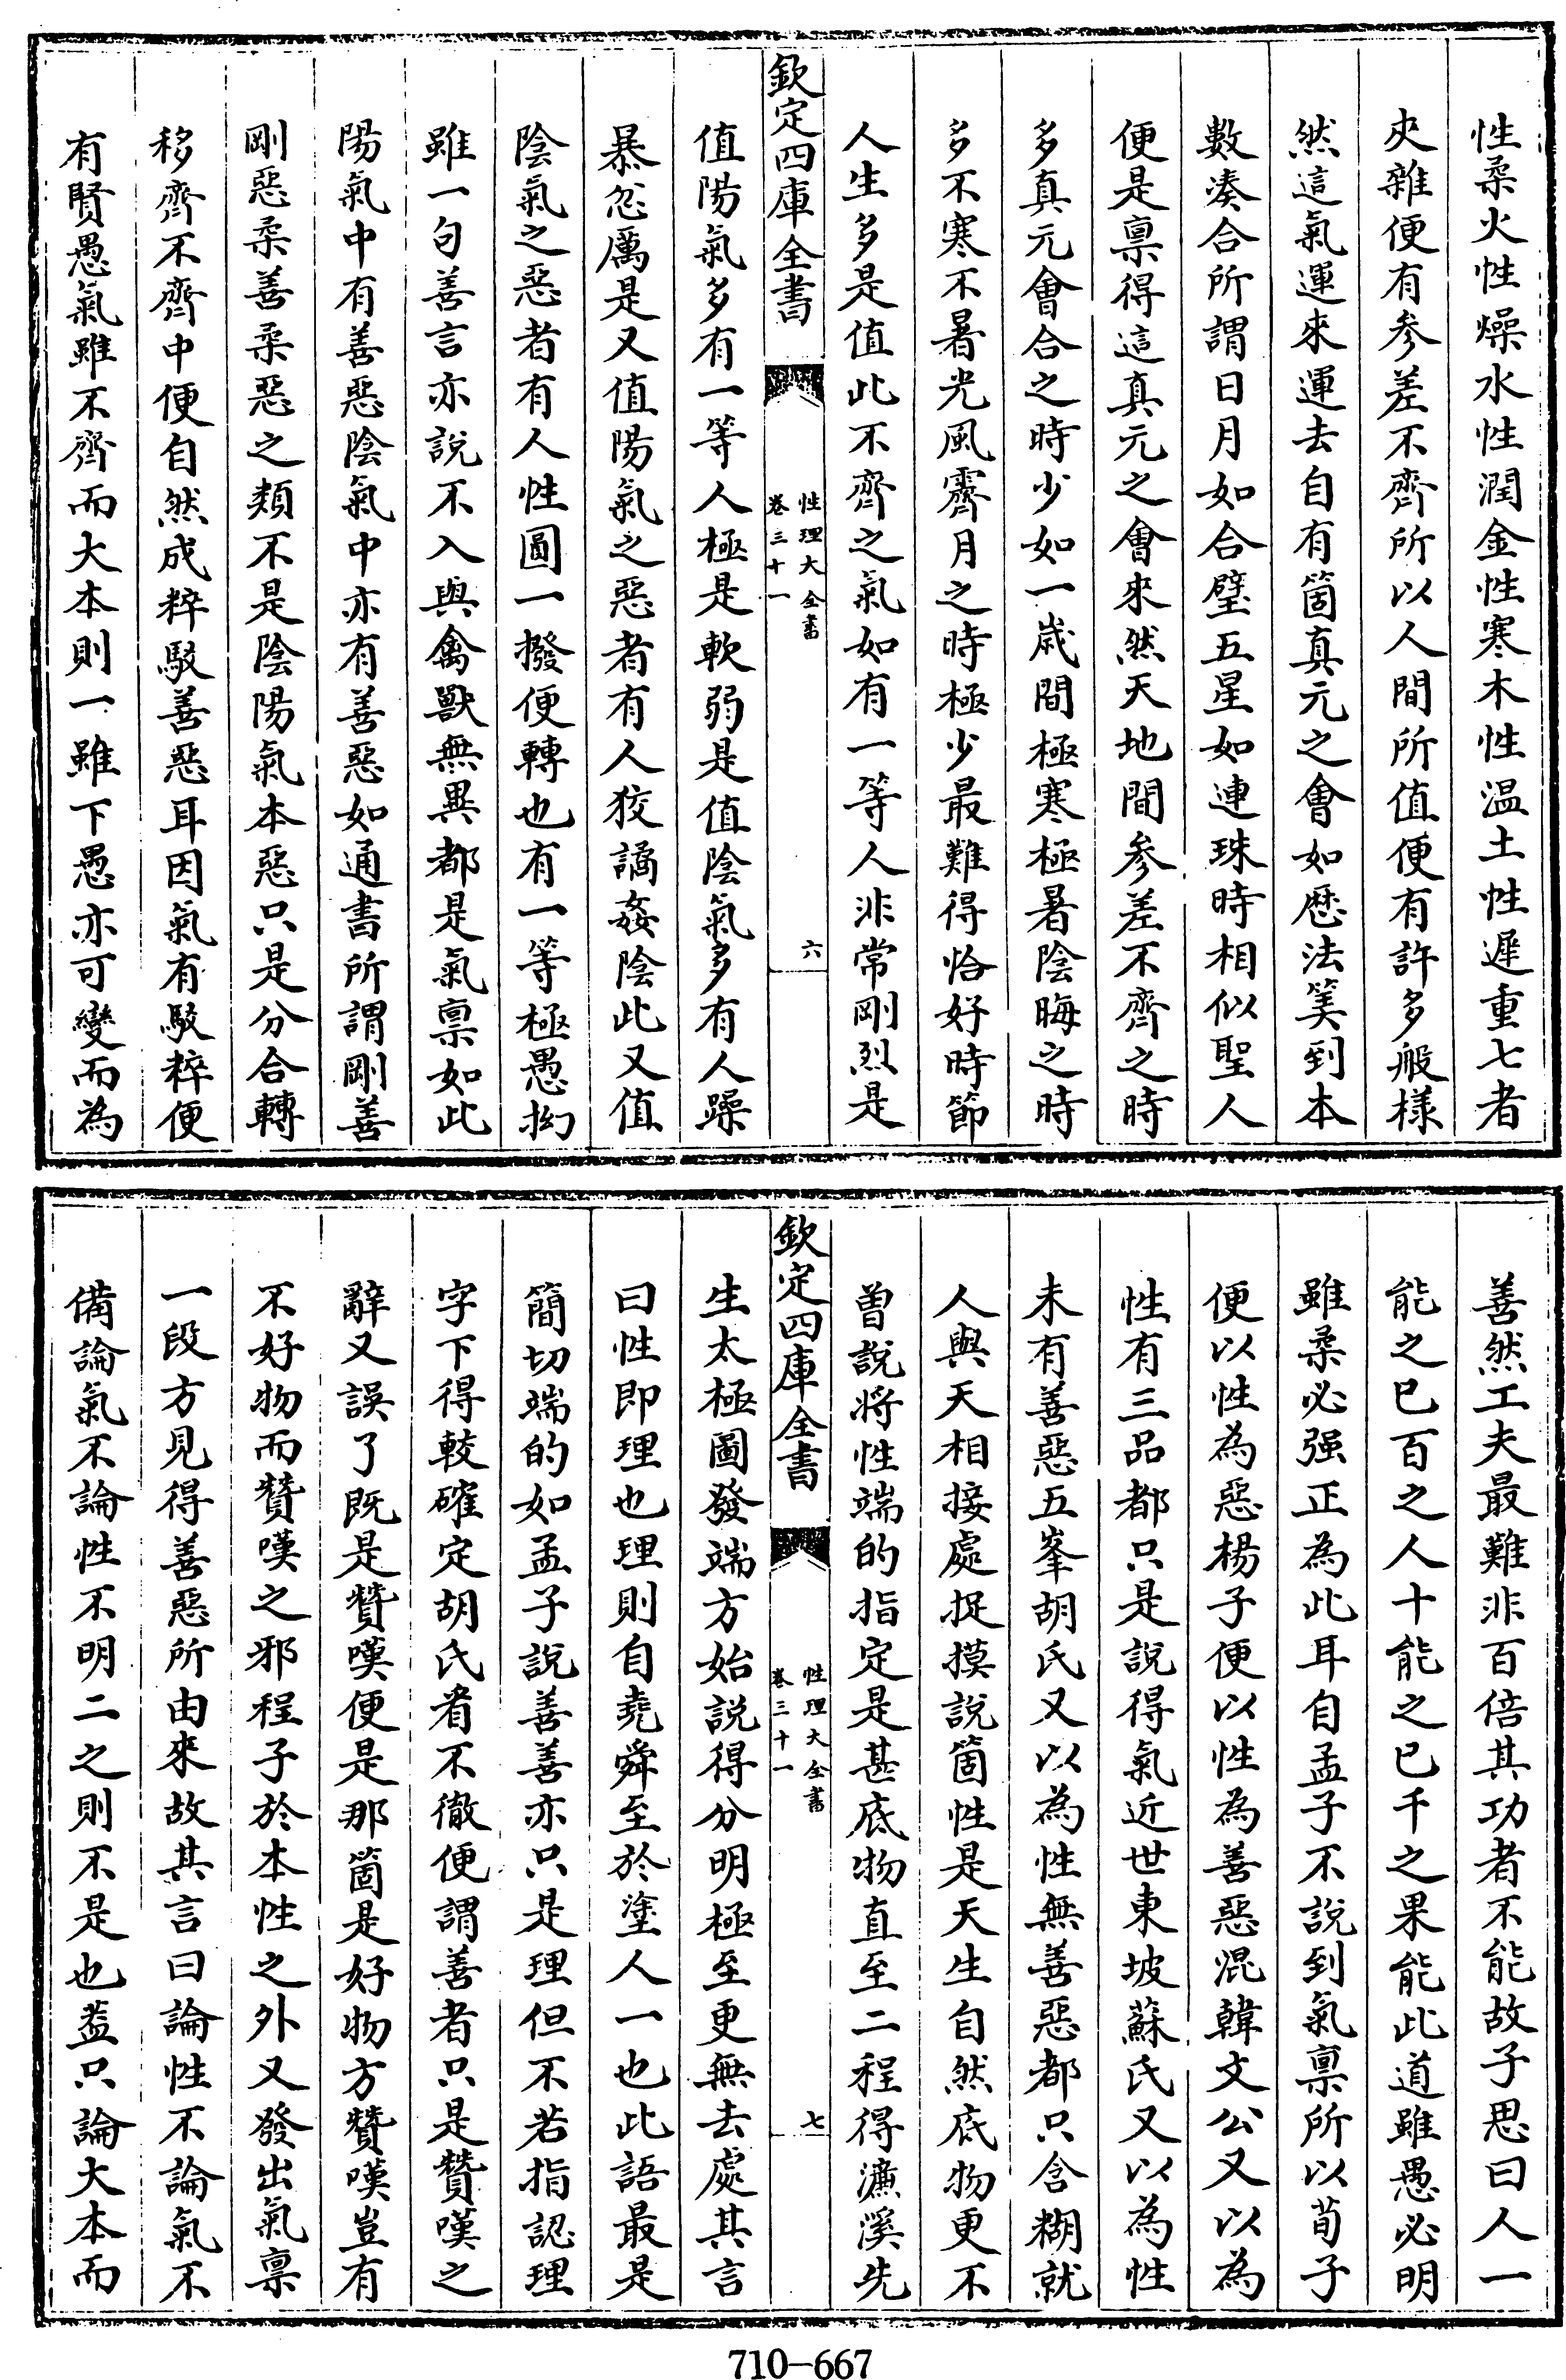 性柔火性燥水性潤金性寒木性温土性遲重七者
夾雜便有參差不齊所以人間所值便有許多般樣
然這氣運來運去自有箇真元之會如厯法筭到本
數湊合所謂日月如合璧五星如連珠時相似聖人
便是禀得這真元之會來然天地間參差不齊之時
多真元會合之時少如一歲間極寒極暑陰晦之時
多不寒不暑光風霽月之時極少最難得恰好時節
人生多是值此不齊之氣如有一等人非常剛烈是
欽定四庫全書
性理大全書
卷三十一
六
值陽氣多有一等人極是軟弱是值陰氣多有人躁
暴忿厲是又值陽氣之惡者有人狡譎姦陰此又值
陰氣之惡者有人性圓一撥便轉也有一等極愚拗
雖一句善言亦說不入與禽獸無異都是氣禀如此
陽氣中有善惡陰氣中亦有善惡如通書所謂剛善
剛惡柔善柔惡之類不是陰陽氣本惡只是分合轉
移齊不齊中便自然成粹駁善惡耳因氣有駁粹便
有賢愚氣雖不齊而大本則一雖下愚亦可變而為
善然工夫最難非百倍其功者不能故子思曰人一
能之已百之人十能之已千之果能此道雖愚必明
雖柔必强正為此耳自孟子不說到氣禀所以荀子
便以性為惡楊子便以性為善惡混韓文公又以為
性有三品都只是說得氣近世東坡蘇氏又以為性
未有善惡五峯胡氏又以為性無善惡都只含糊就
人與天相接處捉摸說箇性是天生自然底物更不
曾說將性端的指定是甚底物直至二程得濂溪先
欽定四庫全書
性理大全書
卷三十一
七
生太極圖發端方始說得分明極至更無去處其言
曰性即理也理則自堯舜至於塗人一也此語最是
簡切端的如孟子說善善亦只是理但不若指認理
字下得較確定胡氏看不徹便謂善者只是贊嘆之
辭又誤了既是贊嘆便是那箇是好物方贊嘆豈有
不好物而贊嘆之邪程子於本性之外又發出氣禀
一段方見得善惡所由來故其言曰論性不論氣不
備論氣不論性不明二之則不是也葢只論大本而
710-667